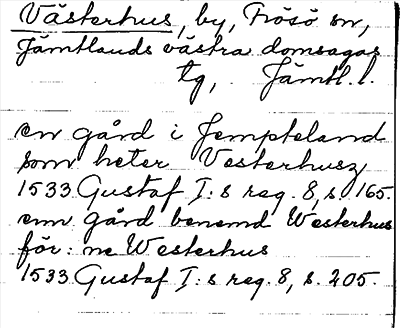 Västerhus, by, Frösö sn,
Jämtlands västra domsagas
tg, Jämtl. l.
en gård i Jempteland
som heter Vesterhusz
1533 Gustaf I:s reg. 8, s. 165.
enn gård benemd Westerhus
för: ne Westerhus
1533 Gustaf I:s reg. 8, s. 205.